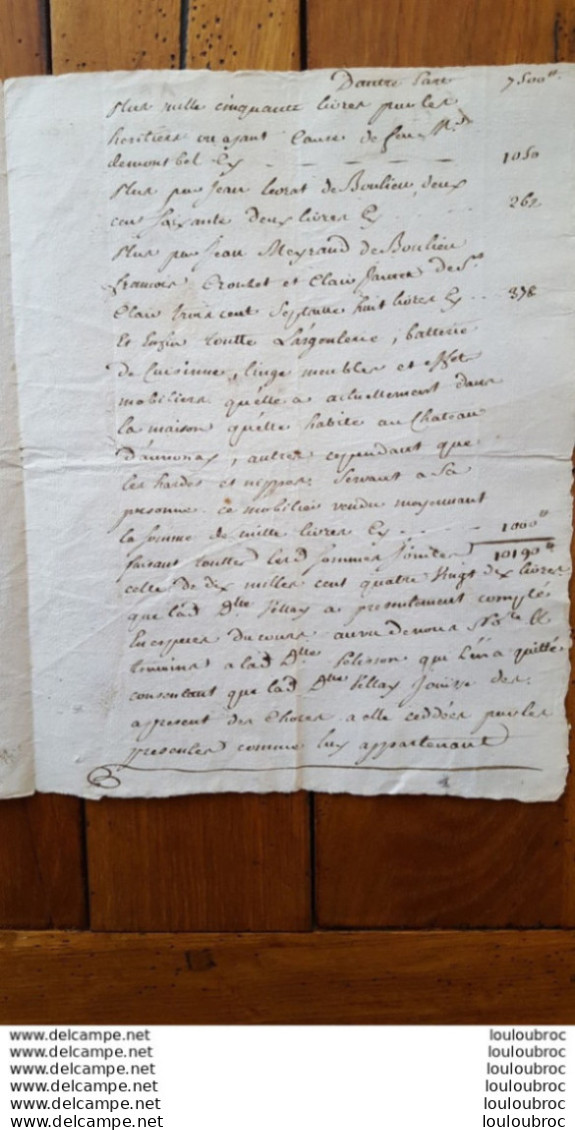 D'autre part 7500ᵗᵗ
Plus mille cinquante livres par les
heritiers ou ayant Cause de feu Mr.
demontbel Cy - - - - 1050
Plus par Jean de Boulieu deux
cen soixante deux livres Cy . . . . 262
Plus par Jean Meyraud de Boulieu
francois Crouzet et Clair de St.
Clair trois cent septante huit livres Cy . . 378
Et Enfin toutte L'argenterie, batterie
de Cuisinne, linge meubles et effet
mobiliers qu'elle a actuellement dans
la maison qu'elle habite au Chateau
d'annonay, autres cependant que
les hardes et nippes servant a sa
personne ce mobilier vendu moyennant
la somme de mille livres Cy . . . . 1000ᵗᵗ
faisant touttes lesd sommes jointes 10190ᵗᵗ
celle de dix milles cent quatre vingt dix livres
que lad Dlle a presentement compté
En especes du cours au vu de nous Nore &
temoins a lad Dlle Pelisson qui L'en a quitté
consentant que lad Dlle jouisse des
a present des choses a elle ceddées par les
presentes comme luy appartenant
www.delcampe.net louloubroc
www.delcampe.net louloubroc
www.delcampe.net louloubroc
www.delcampe.net louloubroc
www.delcampe.net louloubroc
www.delcampe.net louloubroc